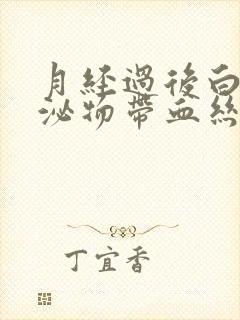 月经過後白
泌物帶血絲
丁宜香